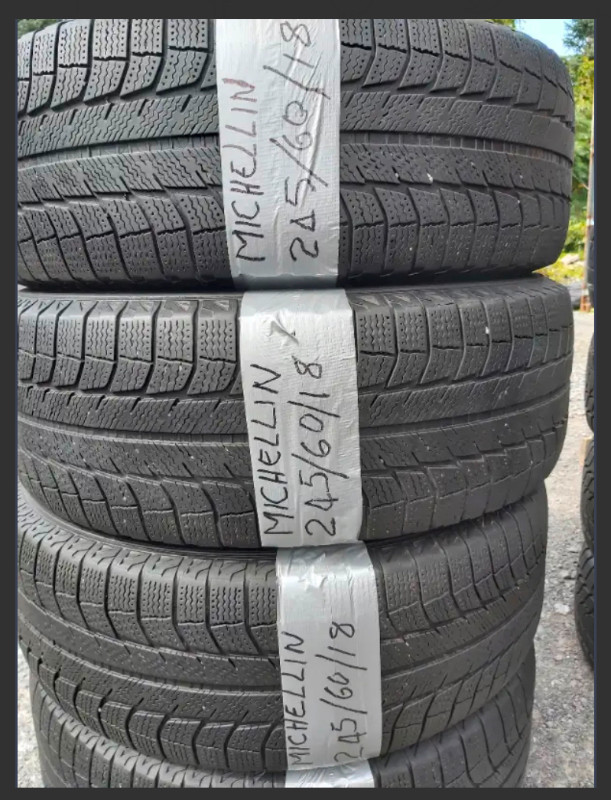 MICHELLIN
245/60/18
MICHELLIN X
245/60/18
MICHELLIN
245/60/18